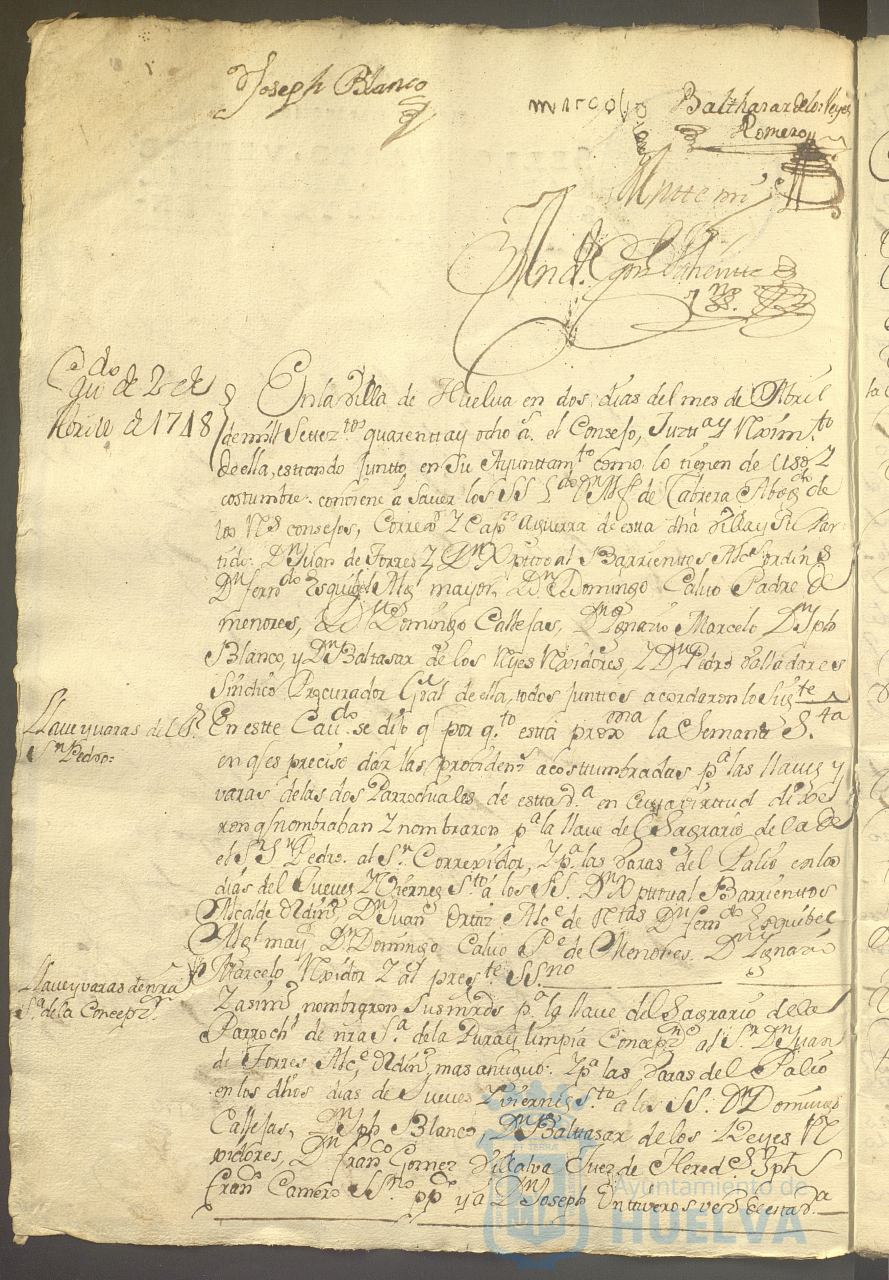 Joseph Blanco
Marcelo
Balthasar de los Reyes
Romero
Antte mi
And.s Gonz
SSno.
Cavdo de 2 de
Abril de 1748
En la Villa de Huelva en dos dias del mes de Abril
de mill Settez.tos quarentta y ocho a.s el Consejo, Justta y Rexim.to
de ella, estando juntto en su Ayunttam.to como lo tienen de uso y
costtumbre. conviene á saver los SS Lz.do Dn de Cabrera Abog.do de
los Rs consejos, Correx.or y Cap.n aguerra de estta dha villa y su Par-
tido. Dn Juan de Torres y Dn Xpttoval Barrienttos Alc.es ordin.s
Dn fern.do Esquibel Alg.l mayor, Dn Domingo Calvo Padre de
menores, Dn Domingo Callejas, Dn Ignazio Marcelo Dn Jph
Blanco, y Dn Balttasar de los Reyes Rexidores, y Dn Pedro Valladares
Sindico Procurador Gral de ella, todos junttos acordaron lo sig.te
Llave y varas del Sr
Sn Pedro:
En estte Cav.do se dijo q por q.to estta prox.ma la Semana S.ta
en q es preciso dar las providen.s acosttumbradas p.a las llaves y
varas de las dos Parrochiales de estta v.a en cuya virttud dixe-
ron q nombraban y nombraron p.a la llave del Sagrario de la de
el Sr Sn Pedro. al Sr Correxidor, y p.a las varas del Palio en los
dias del Jueves y Viernes S.to á los SS. Dn Xpttoval Barrienttos
Alcalde Ordin.o, Dn Juan Orttiz Alc.e de Dn fern.do Esquibel
Alg.l may.r Dn Domingo Calvo P.e de Menores. Dn Ignazio
Marcelo Rexidor y al pres.te SS.no
Llave y varas de nra
S.a de la Concepz.n
Y asim.o nombraron sus mrds p.a la llave del Sagrario de la
Parroch.l de nra S.a de la Pura y limpia Concepz.n al Sr Dn Juan
de Torres Alc.e Ordin.o mas antiguo. Y p.a las varas del Palio
en los dhos dias de Jueves y viernes S.to a los SS. Dn Domingo
Callejas, Dn Jph Blanco Dn Balttasar de los Reyes Re-
xidores, Dn fran.co Gomez Villalva Juez de Hered.s Jph
fran.co Camero SS.no pp.co y á Dn Joseph Unttiveros vez.o de esta v.a
Ayuntamiento de
HUELVA